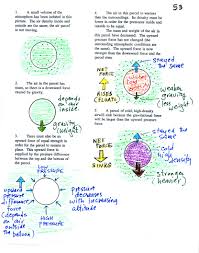 53
1. A small volume of the
atmosphere has been isolated in this
parcel. The air density inside and
outside are the same; the air parcel is
not moved
2. The air in this parcel has
mass, there is a downward force
created by gravity.
depends on
air
inside
gravity
(weight)
3. There must also be an
upward force of equal strength in
order for the parcel to remain in
place. This upward force is
supplied by the pressure difference
between the top and the bottom of
the parcel.
LOW PRESSURE
HIGH
PRESSURE
upward
pressure
difference
force
(depends
on air
outside
the balloon)
pressure
decreases
with increasing
altitude
4. The air in this parcel is warmer
than the surroundings.
The mass and weight of the air in
this parcel decreased. The upward
pressure force has not changed (the
surrounding atmospheric conditions are
the same). The upward force is now
stronger than the downward
gravitational force and the parcel
NET
FORCE
RISES
(FLOATS)
stayed the
same
weaker
gravity
(less
weight)
5. A parcel of cold, high density air
will sink because now the gravitational force
will be bigger than the upward pressure
force.
NET
FORCE
SINKS
stayed the
same
cold
high
density
stronger
heavier